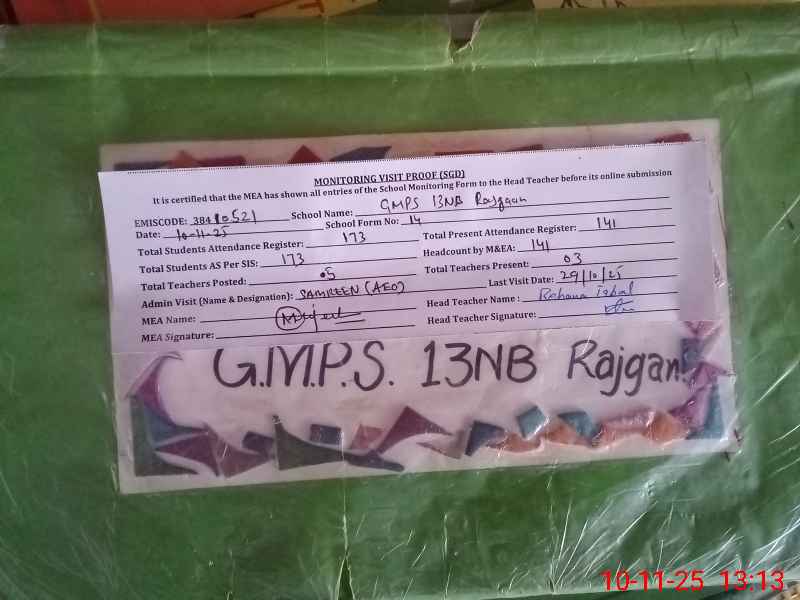 MONITORING VISIT PROOF (SGD)
It is certified that the MEA has shown all entries of the School Monitoring Form to the Head Teacher before its online submission
EMISCODE: 38410521 School Name: GMPS 13NB Rajgan
Date: 10-11-25 School Form No: 14
Total Students Attendance Register: 173 Total Present Attendance Register: 141
Total Students AS Per SIS: 173 Headcount by M&EA: 141
Total Teachers Posted: 05 Total Teachers Present: 03
Admin Visit (Name & Designation): SAMREEN (AEO) Last Visit Date: 29/10/25
MEA Name: Head Teacher Name : Rehana Iqbal
MEA Signature: Head Teacher Signature:
G.M.P.S. 13NB Rajgan
10-11-25 13:13